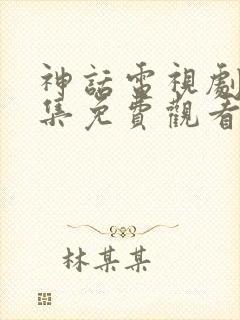 神話電視劇
集免費觀看
林某某